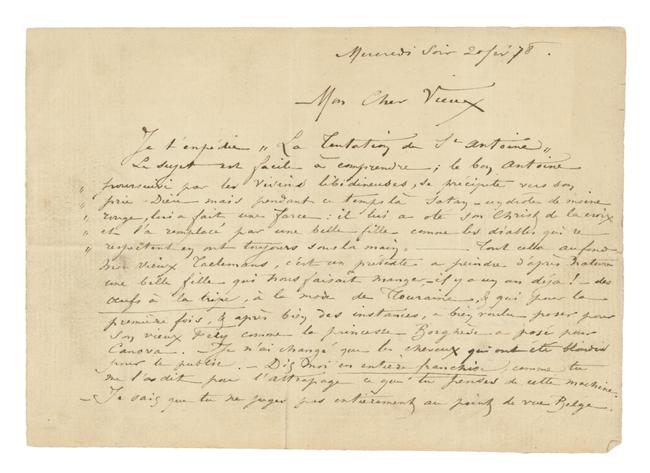 Mercredi Soir 20 fév 78.
Mon Cher Vieux
Je t'enpédie " La Tentation de St Antoine "
Le sujet est facile à comprendre ; le bon Antoine
" poursuivi par les visions libidineuses, se précipite vers son
" prie-Dieu mais pendant ce temps là Satan – un drole de moine
" rouge, lui a fait une farce : il lui a oté son Christ de la croix
" et l'a remplacé par une belle fille comme les diables qui se
" respectent en ont toujours sous la main. – Tout cella au fond
mon vieux Taelemans, c'est un prétexte a peindre d'après Nature
une belle fille qui nous faisait manger – il y a un an déja ! – des
œufs à la tripe, à la mode de Touraine, & qui pour la
première fois, & après bien des instances, a bien voulu poser pour
son vieux Fély comme la princesse Borghèse a posé pour
Canova. – Je n'ai changé que les cheveux qui ont été blondis
pour le public. – Dis moi en entière franchise, comme tu
me l'as dit pour l'attrapage ce que tu penses de cette machine.
– Je sais que tu ne juges pas entièrement au point de vue Belge.